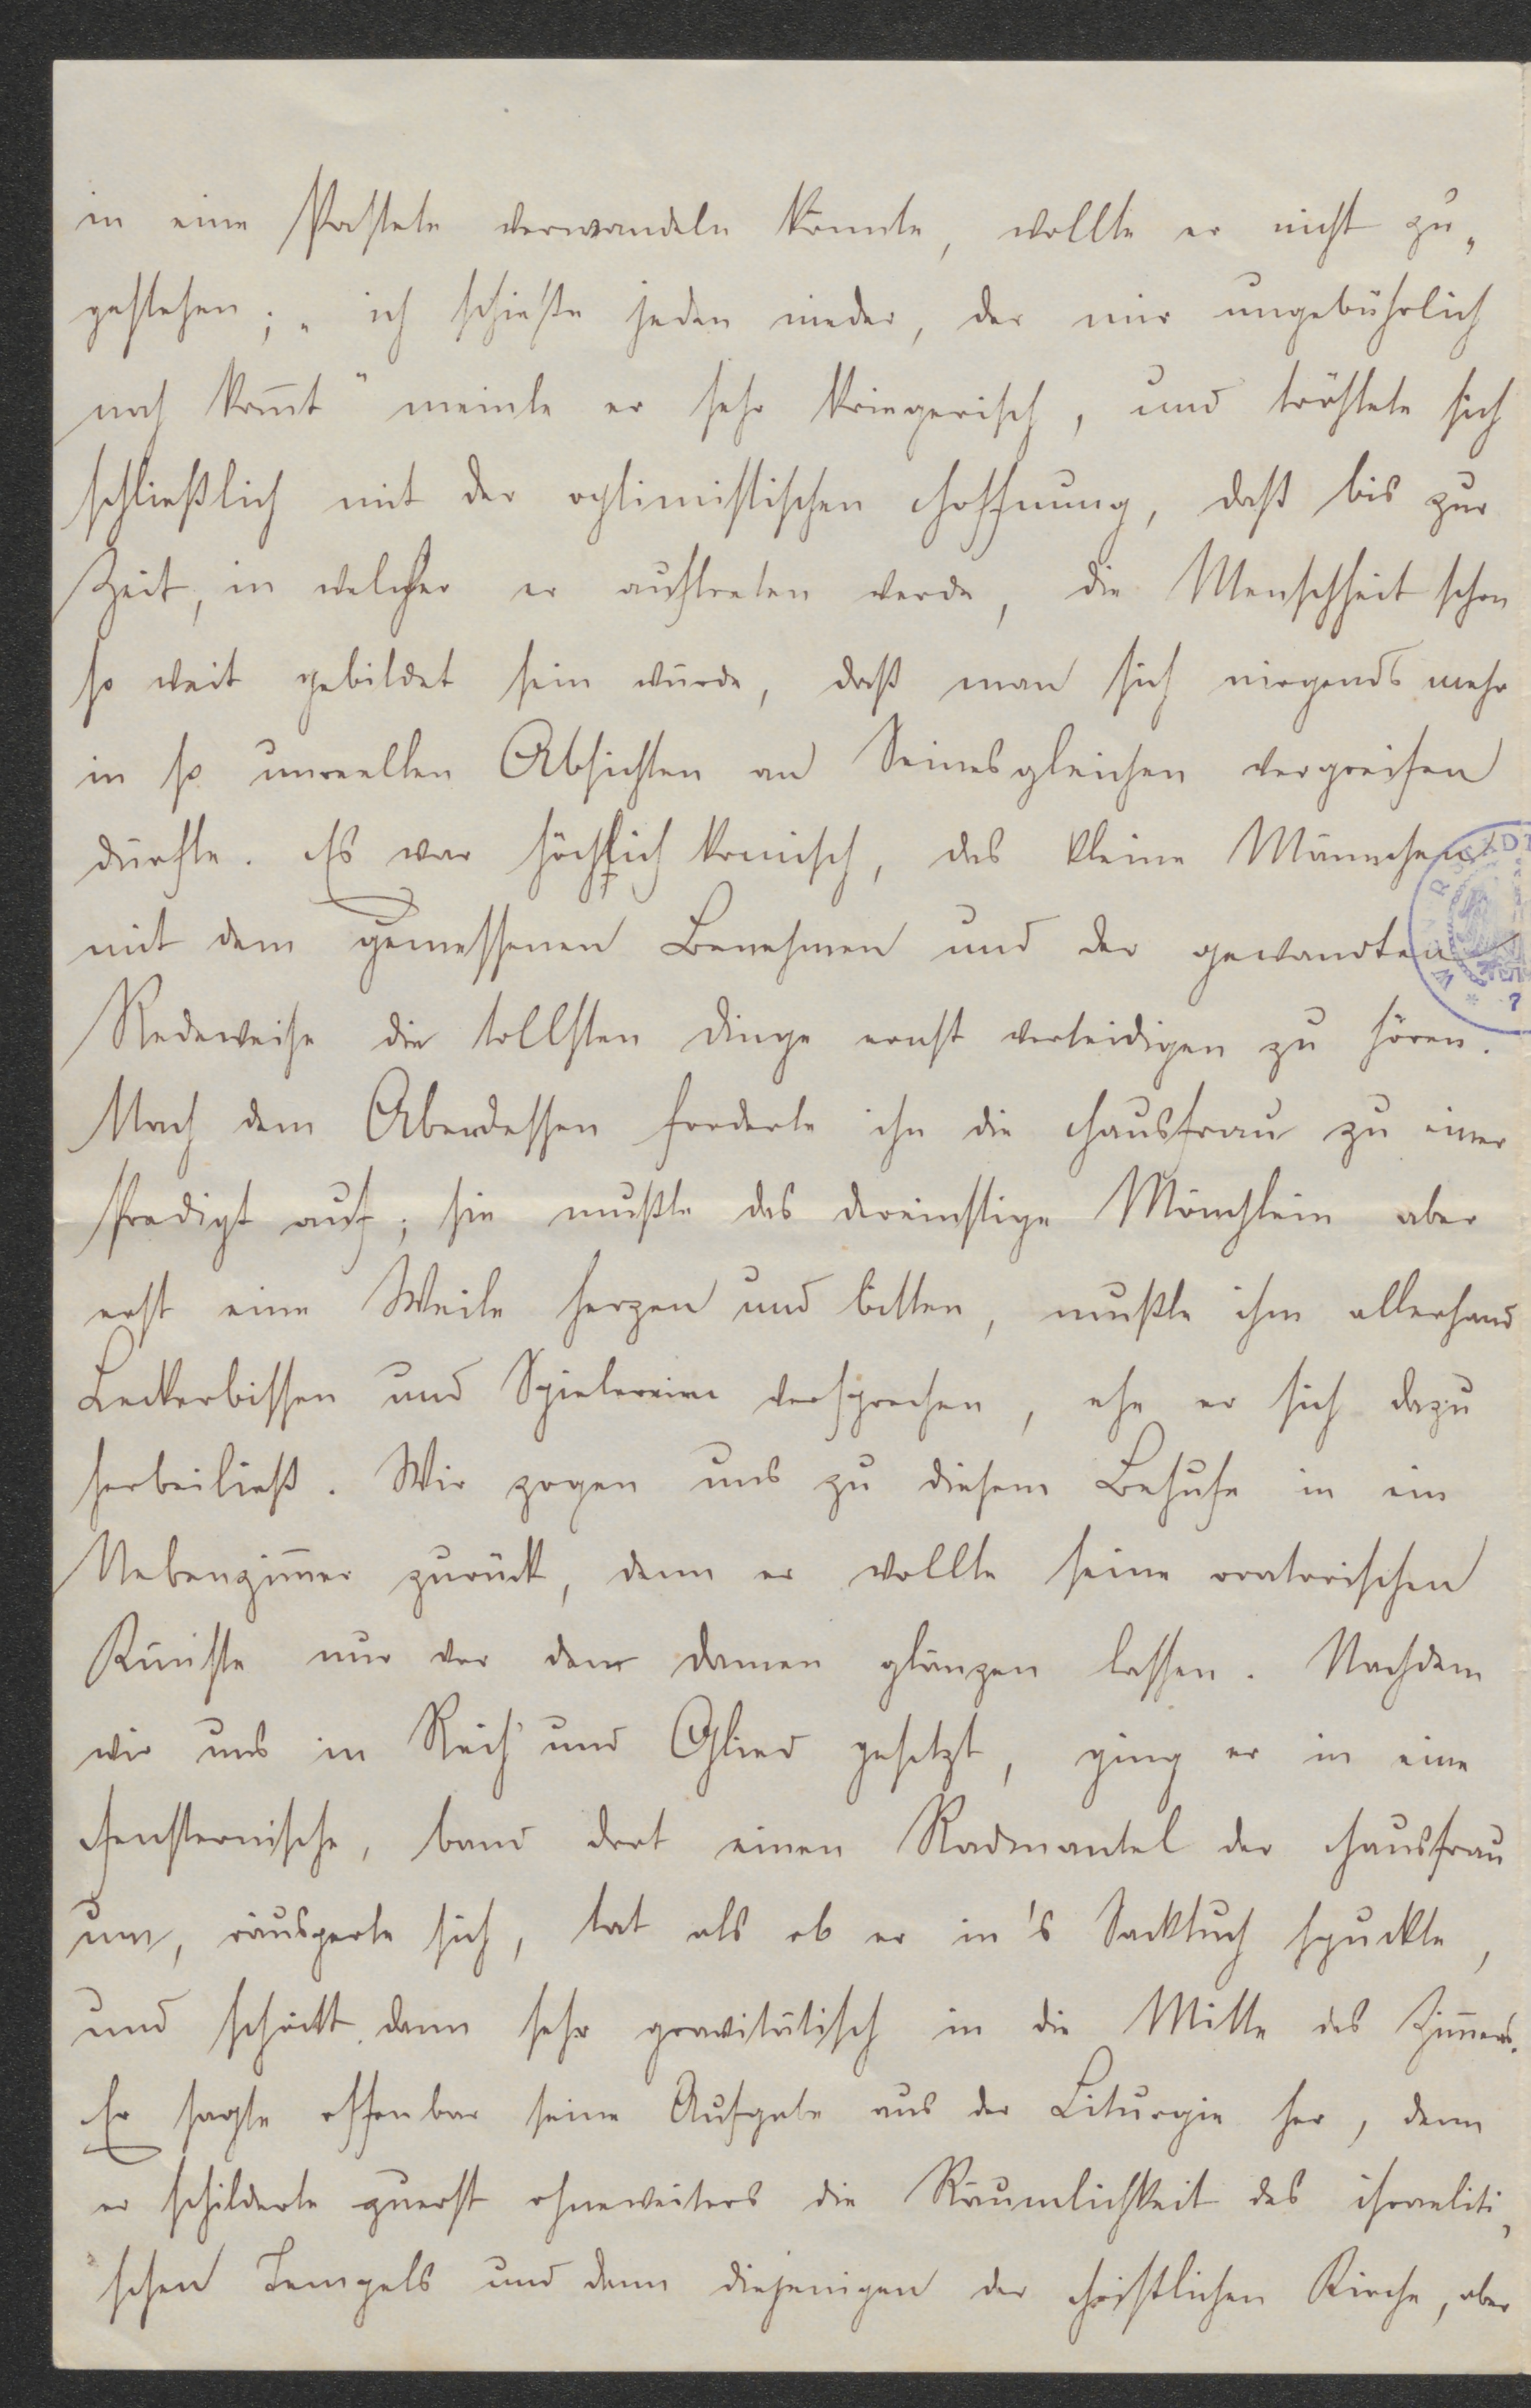 in eine Pastete verwandeln könnte, wollte er nicht zu„
gestehen; „ich schieße jeden nieder, der mir ungebührlich
nah kom̄t“ meinte er sehr kriegerisch, und tröstete sich
schließlich mit der optimistischen Hoffnung, daß bis zur
Zeit, in welcher er auftreten werde, die Menschheit schon
so weit gebildet sein würde, daß man sich nirgends mehr
in so unreellen Absichten an Seinesgleichen vergreifen
dürfte. Es war höchlich komisch, das kleine Männchen
mit dem gemessenen Benehmen und der gewandten
Redeweise die tollsten Dinge ernst verteidigen zu hören.
Nach dem Abendessen forderte ihn die Hausfrau zu einer
Predigt auf; sie mußte das dereinstige Mönchlein aber
erst eine Weile herzen und bitten, mußte ihm allerhand
Leckerbissen und Spielereien versprechen, ehe er sich dazu
herbeiließ. Wir zogen uns zu diesem Behufe in ein
Nebenzim̄er zurück, denn er wollte seine oratorischen
Künste nur vor den Damen glänzen lassen. Nachdem
wir uns in Reih' und Glied gesetzt, ging er in eine
Fensternische, band dort einen Radmantel der Hausfrau
um, räusperte sich, tat als ob er in's Sacktuch spuckte,
und schritt dann sehr gravitätisch in die Mitte des Zim̄ers.
Er sagte offenbar seine Aufgabe aus der Liturgie her, denn
er schilderte zuerst ohneweiters die Räumlichkeit des israeliti„
schen Tempels und dann diejenigen der christlichen Kirche, aber